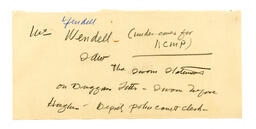 Yendell
Mr Wendell - (under-cover for
RCMP)
saw
The Sworn Statement
on Duggan Letter - Sworn before
Hughes - Deputy police court clerk